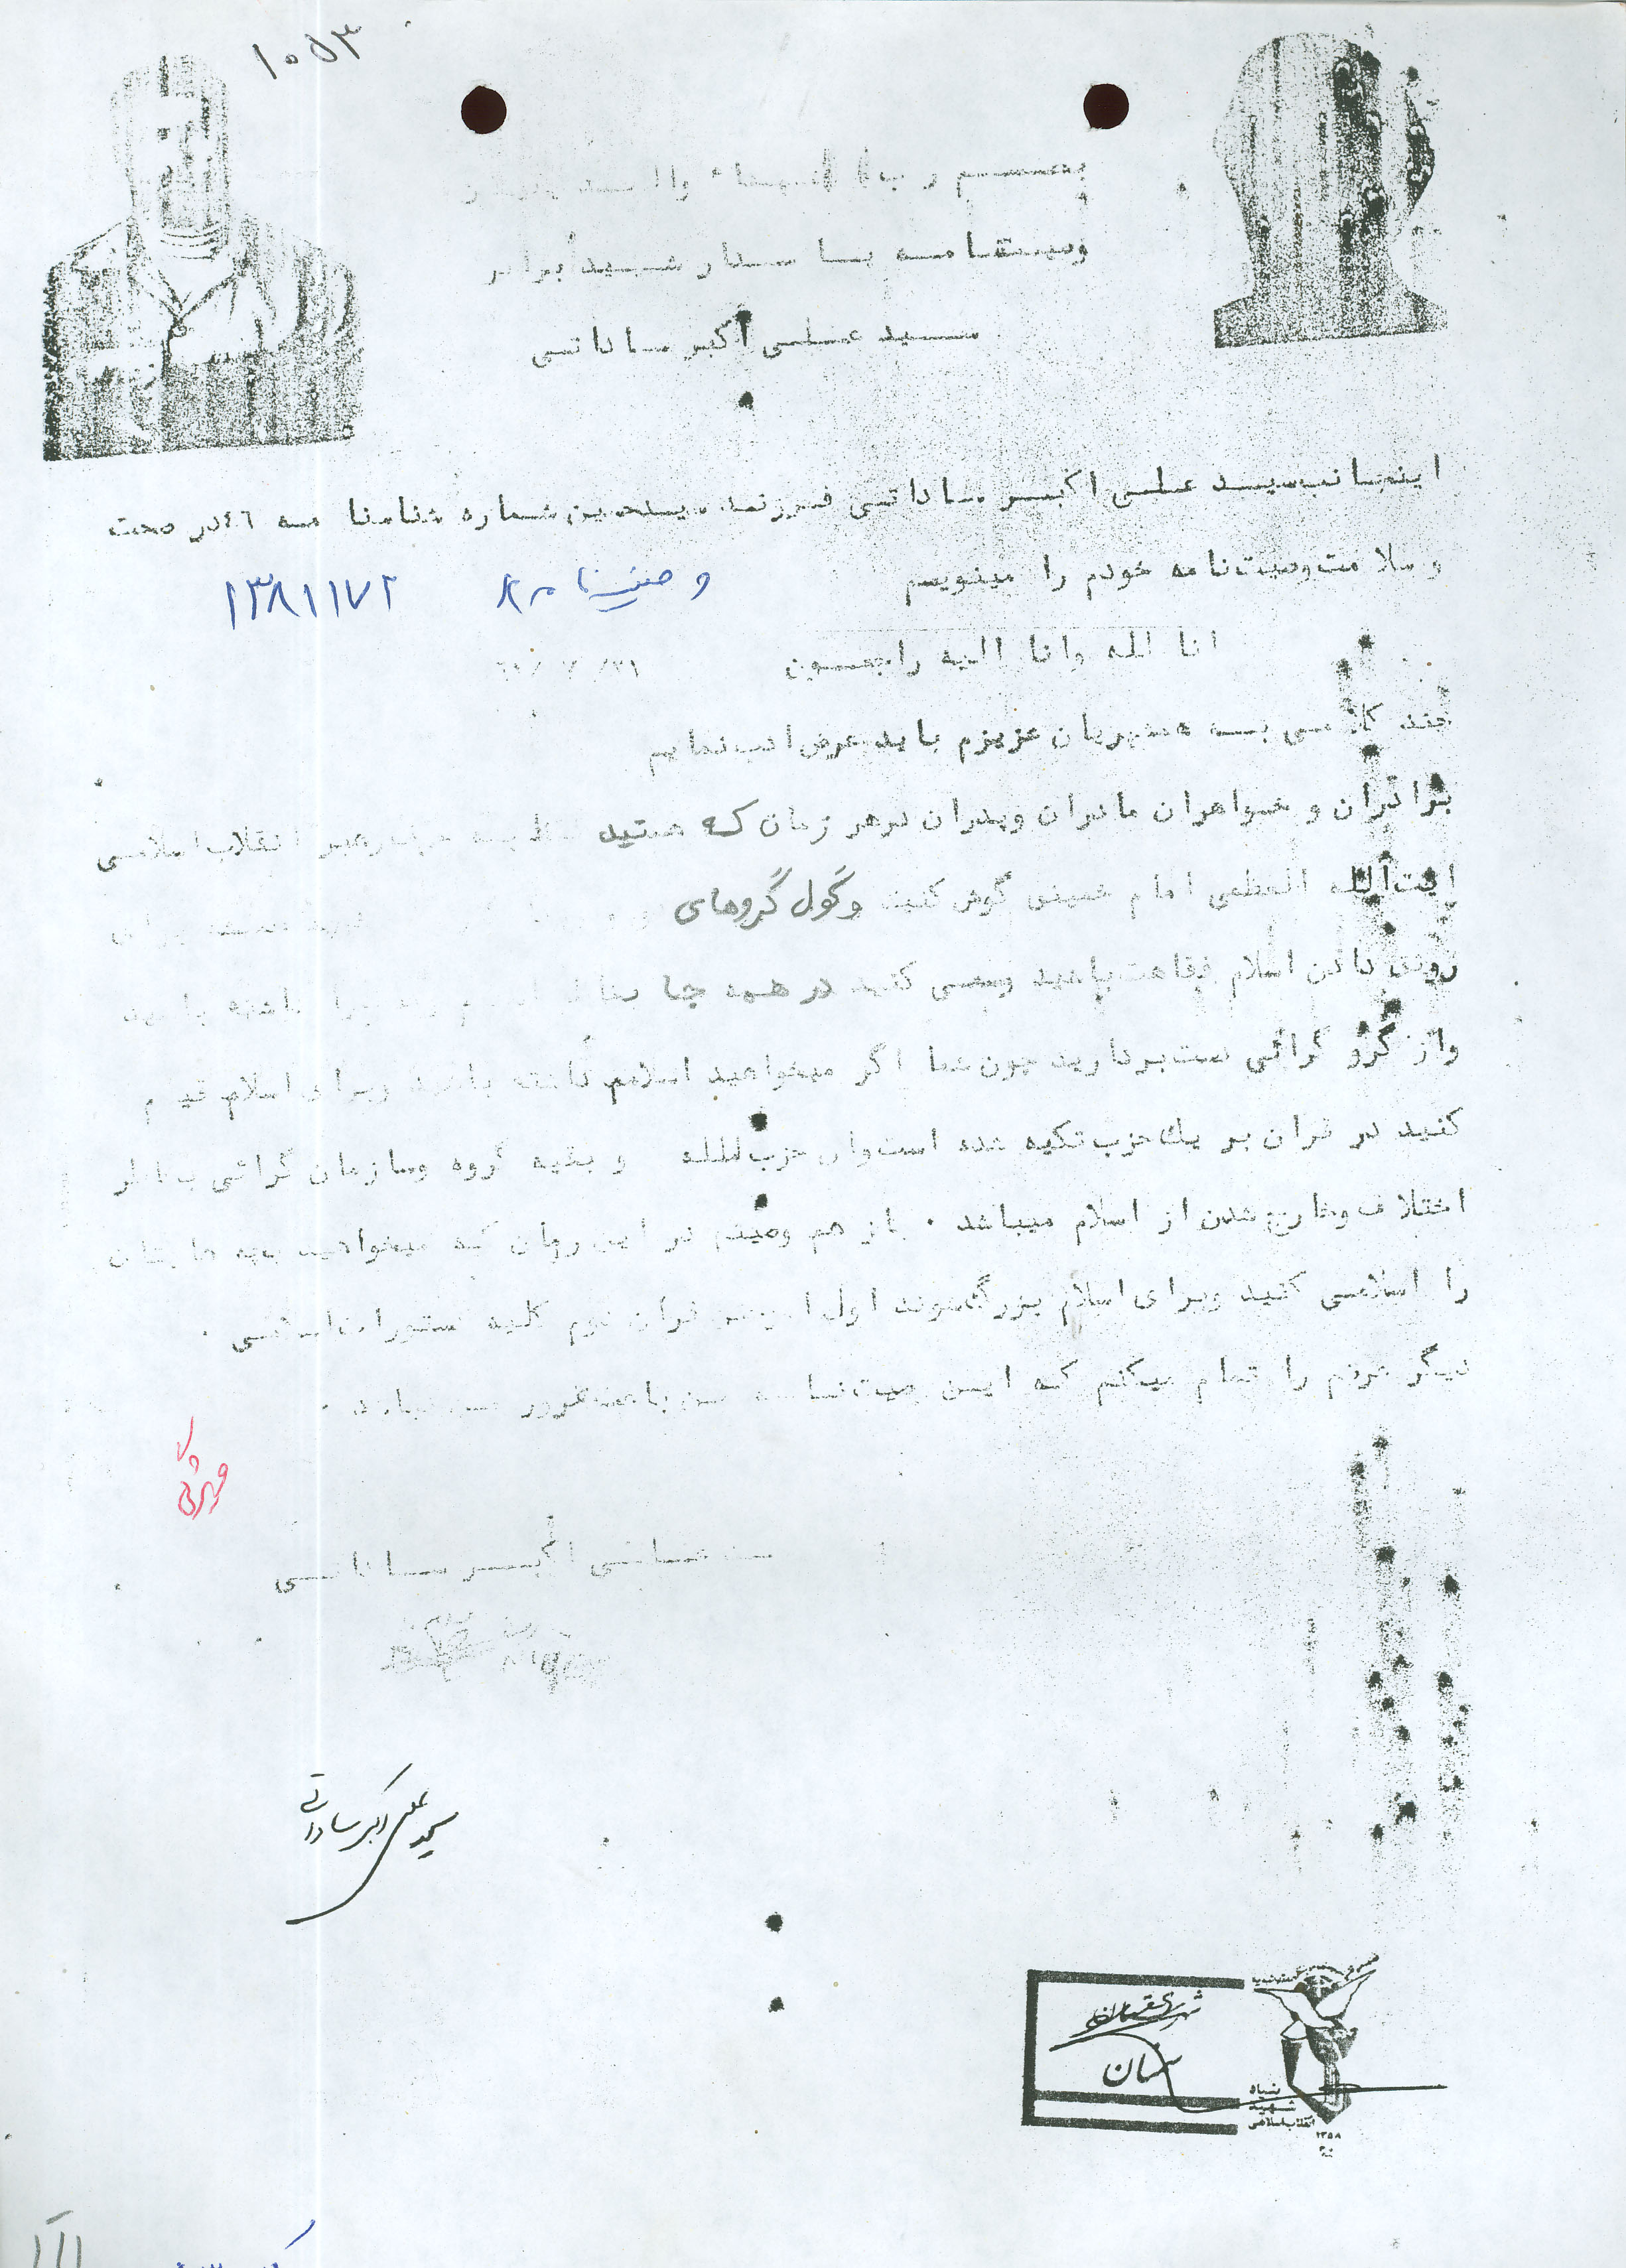 ۱۰۵۳
بسم رب الشهداء والصدیقین
وصیتنامه پاسدار شهید برادر
سید علی اکبر ساداتی
اینجانب سید علی اکبر ساداتی فرزند سیدحسین شماره شناسنامه ٤٦ در صحت
و سلامت وصیت‌نامه خودم را مینویسم
وصیتنامه ۱۳۸۱۱۷۲
انا لله وانا الیه راجعون
چند کلامی به همشهریان عزیزم باید عرض ادب نمایم
برادران و خواهران مادران وپدران درهر زمان که هستید رهبر انقلاب اسلامی
ایت الله العظمی امام خمینی گوش کنید وگول گروهای
رونق دادن اسلام فقاهت باشید وسعی کنید در همه جا داشته باشید
واز گرو گرائی دست بردارید چون شما اگر میخواهید اسلام داشته باشید وبرای اسلام قیام
کنید در قران بر یك حزب تکیه شده است وان حزب الله و بقیه گروه وسازمان گرائی بخاطر
اختلاف وخارج شدن از اسلام میباشد . باز هم وصیتم در این زمان که میخواهید بچه هایتان
را اسلامی کنید وبرای اسلام بزرگ شوند اول قران دوم کلیه دستورات اسلامی .
دیگر عرضم را تمام میکنم که این وصیت‌نامه من باعث غرور
سید علی اکبر ساداتی
سید علی اکبر ساداتی
سمنان
بنیاد
شهید
انقلاب اسلامی
۱۳۵۸